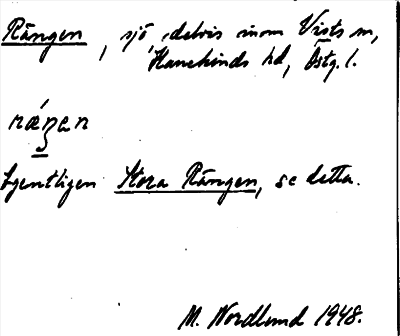 Rängen, sjö, delvis inom Vists sn,
Hanekinds hd, Östg. l.
ræŋən
Egentligen Stora Rängen, se detta.
M. Nordlund 1948.